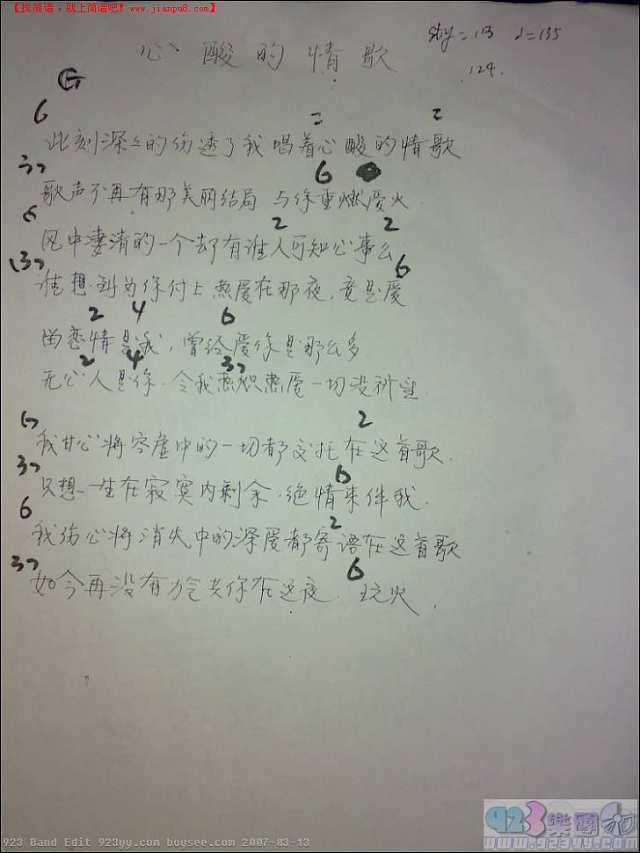 【找简谱，就上简谱吧！www.jianpu8.com】
心酸的情歌
Sty=113 ♩=135
124.
G
6 2 2
此刻深深的伤透了我 唱着心酸的情歌
37 6
歌声不再有那美丽结局 与你重燃爱火
6 2 2
风中凄清的一个 却有谁人可知心事么
(37 6
谁想到为你付上热爱在那夜，竟是爱
2 4 6
曲恋情是我，曾经爱你是那么多
2 4 37
无心人是你，令我热炽热爱一切没补空
6 2
我甘心将空虚中的一切都交托在这首歌
37 6
只想一生在寂寞内剩余 绝情来伴我
6 2
我伤心将消失中的深爱都寄语在这首歌
37 6
如今再没有力气共你在这夜 玩火
923樂團
www.923yy.com
923 Band Edit 923yy.com boysee.com 2007-03-13